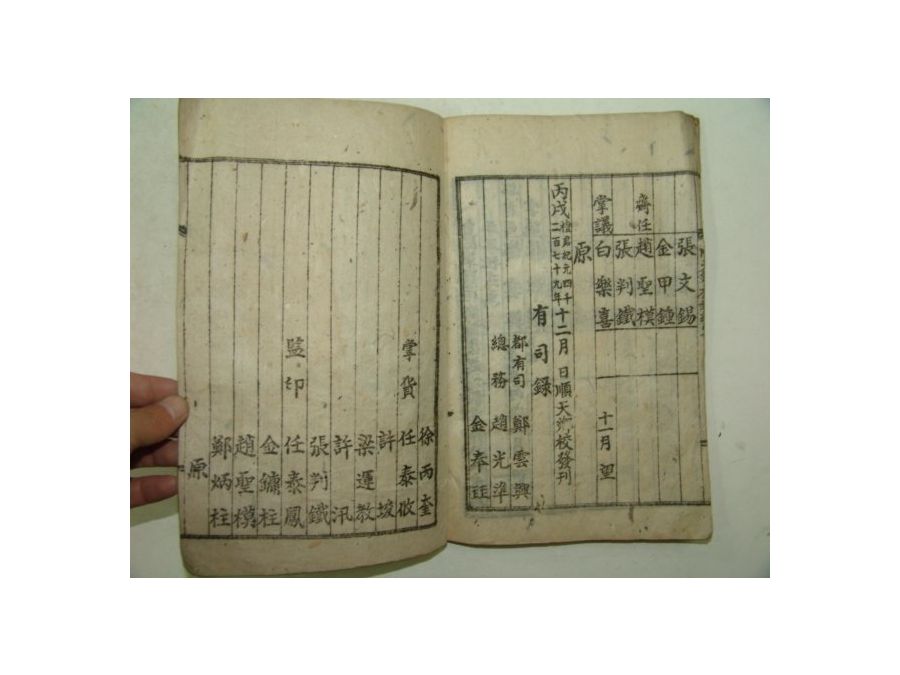 張文錫
金甲鍾
齋任 趙聖模
張判鐵
掌議 白樂喜 十一月 望
原
丙戌 檀君紀元四千二百七十九年 十二月 日順天鄉校發刊
有司錄
都有司 鄭雲興
總務 趙光準
金奉珏
徐丙奎
掌貨 任泰攸
許埈
梁運敎
許汛
張判鐵
監印 任泰鳳
金鏞柱
趙聖模
鄭炳柱
原